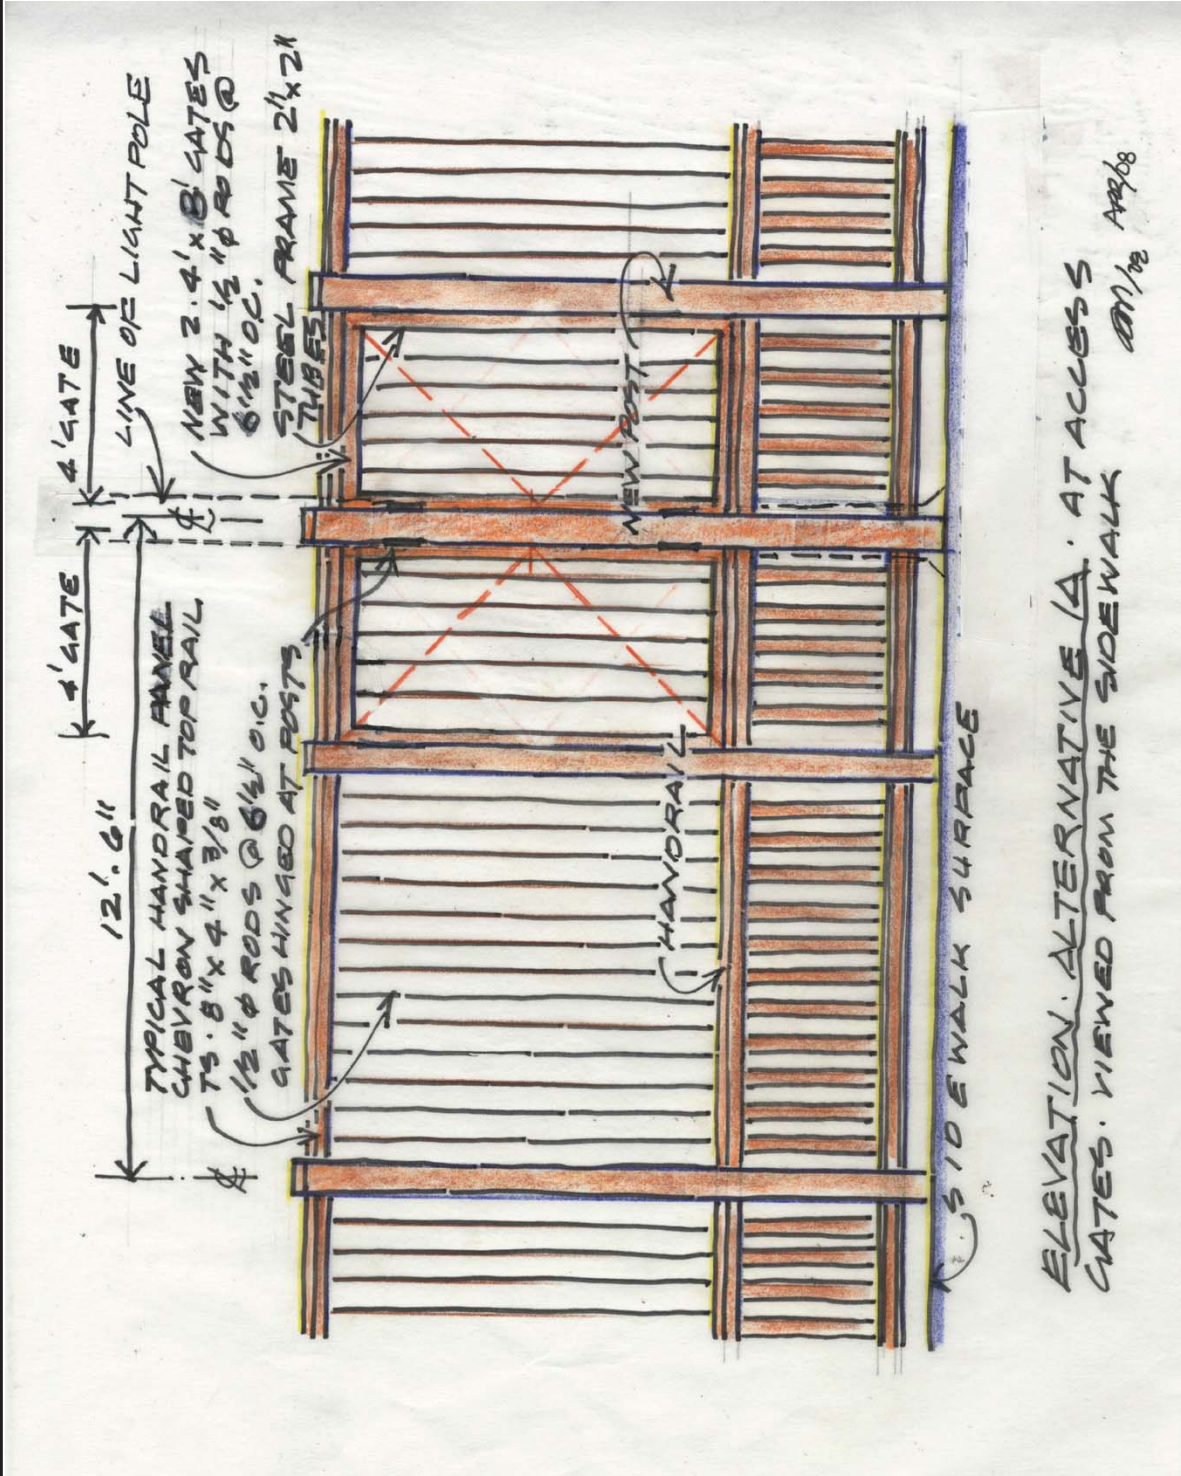 12'. 6"
4' GATE
4' GATE
LINE OF LIGHT POLE
TYPICAL HANDRAIL PANEL
CHEVRON SHAPED TOP RAIL
TS. 8" x 4" x 3/8"
1/2" φ RODS @ 6 1/2" O.C.
GATES HINGED AT POSTS
NEW 2. 4' x 8' GATES
WITH 1/2" φ RODS @
6 1/2" O.C.
STEEL FRAME 2" x 2"
TUBES
HANDRAIL
NEW POST
SIDEWALK SURFACE
ELEVATION. ALTERNATIVE 1A. AT ACCESS
GATES. VIEWED FROM THE SIDEWALK
APR/08